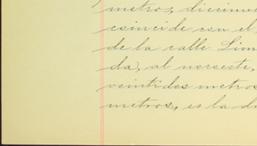 metros, diecinue
coincide con el
de la calle Sim
da, al noroeste,
veintidos metros
metros, es la d